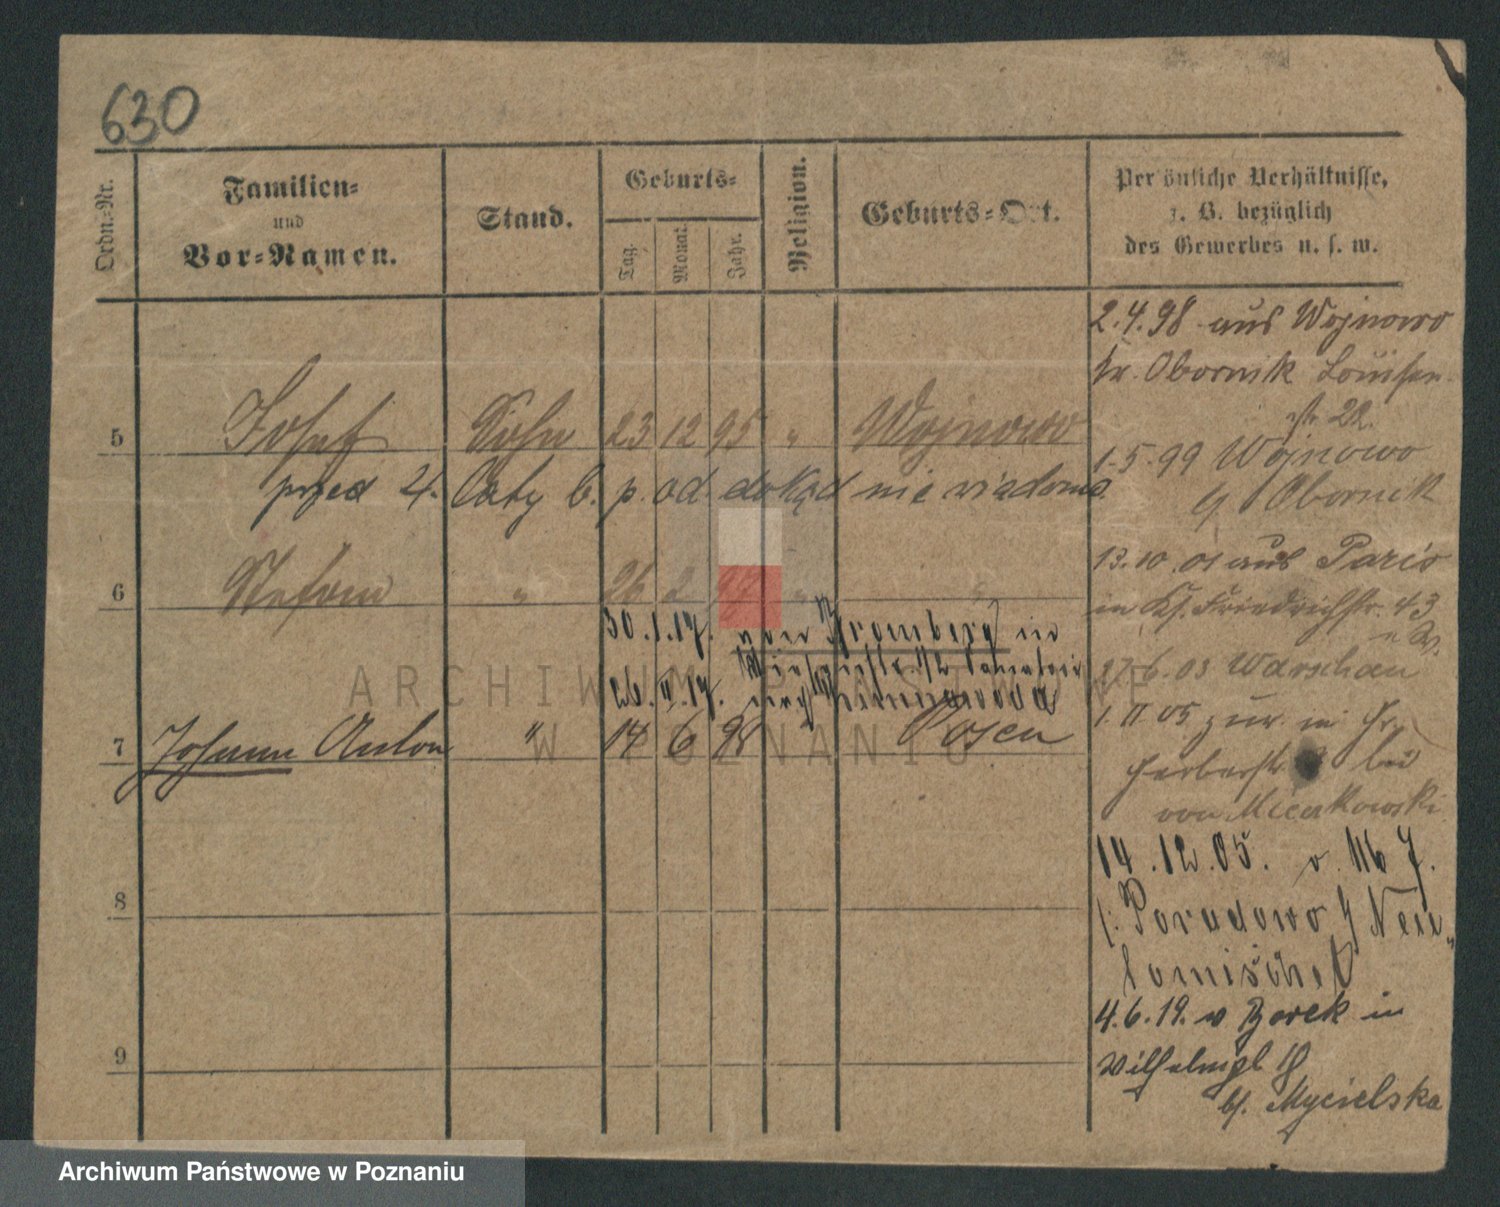 630
Ordn.-Nr.
Familien-
und
Vor-Namen.
Stand.
Geburts-
Tag.
Monat.
Jahr.
Religion.
Geburts-Ort.
Persönliche Verhältnisse,
z. B. bezüglich
des Gewerbes u. s. w.
5 Josef Sohn 23 12 95 " Wojnowo
przed 2. Laty 6. p. od dokąd nie wiadomo.
6 Stefan " 26 2 97 " "
30.1.17. von Bromberg in
26.II.17. nach
7 Johann Anton " 14 6 98 Posen
8
9
2.4.98 aus Wojnowo
kr. Obornik Louisen
str 22
1.5.99 Wojnowo
Obornik
13.10.01 aus Paris
in Ks. Friedrichstr. 43
27.6.03 Warschau
1.11.05 zur. in
bei
von
14.12.05. v. 116 J.
Poradowo Neu
tomischel
4.6.19. v Borek in
Wilhelmpl
bf. Mycielska
ARCHIWUM PAŃSTWOWE
W POZNANIU
Archiwum Państwowe w Poznaniu